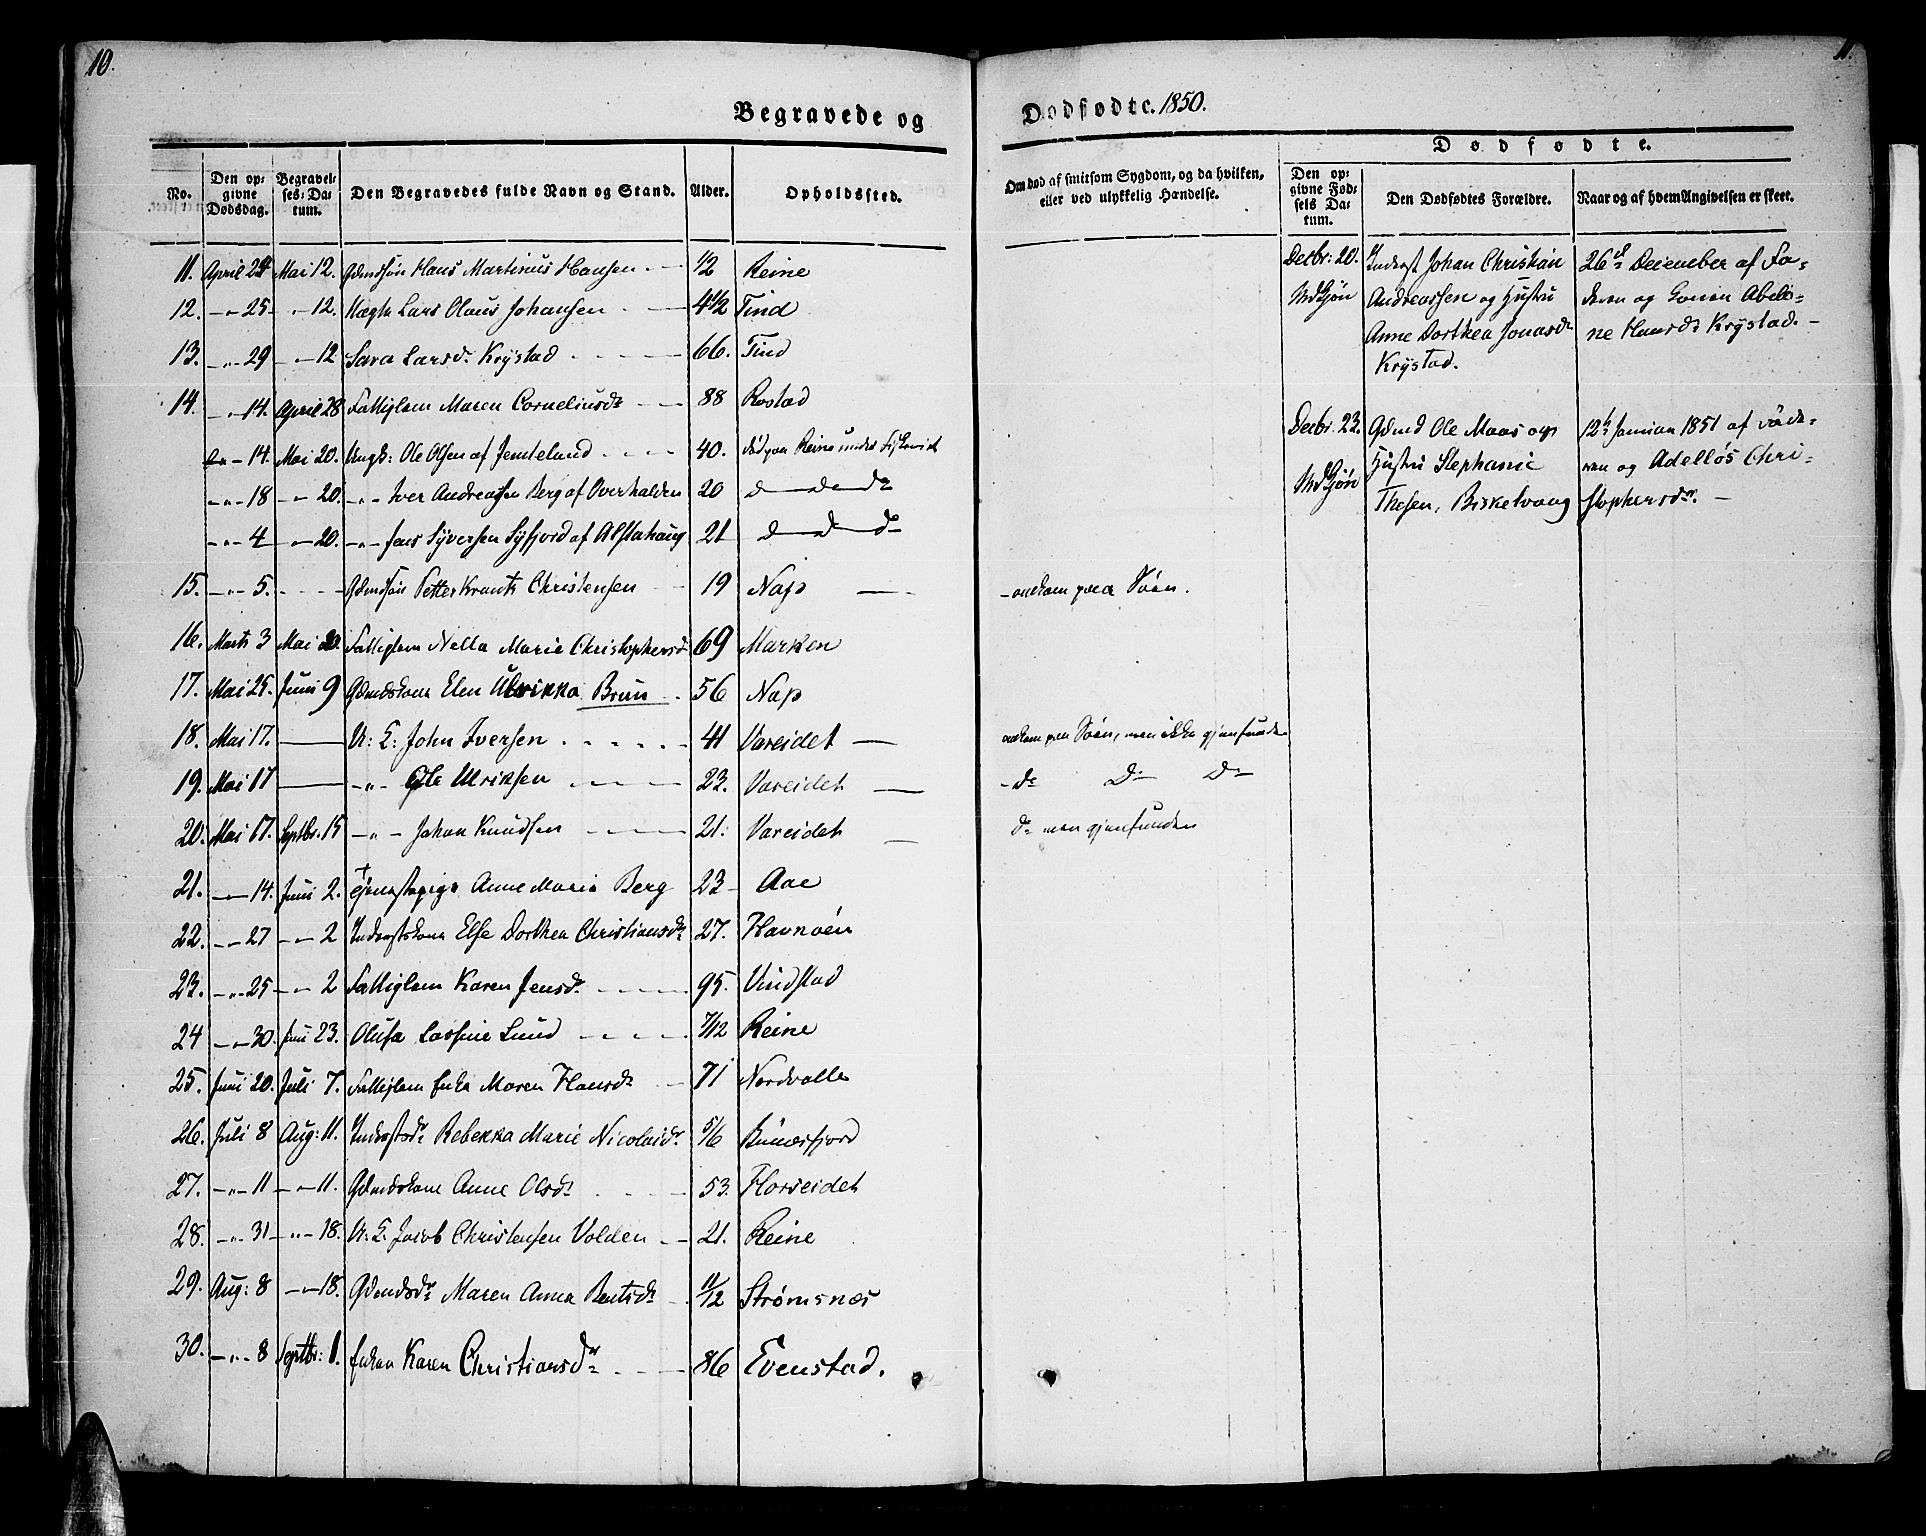 10.
11.
Begravede og
Dødfødte. 1850.
No.
Den opgivne Dødsdag.
Begravelses-Datum.
Den Begravedes fulde Navn og Stand.
Alder.
Opholdssted.
Om død af smitsom Sygdom, og da hvilken, eller ved ulykkelig Hændelse.
Dødfødte.
Den opgivne Fødsels Datum.
Den Dødfødtes Forældre.
Naar og af hvem Angivelsen er skeet.
11. April 24 Mai 12. Gdmdsøn Hans Martinus Hansen 1/2 Reine
12. -"- 25 -"- 12. Lars Olaus Johansen 4 1/2 Tind
13. -"- 29 -"- 12 Sara Larsd. Krystad 66. Tind
14. -"- 14. April 28 Fattiglem Maren Corneliusdr 88 Rostad
-"- 14. Mai 20. Ungk: Ole Olsen af Jemteland 40. død paa Reine under Fiskeriet
-"- 18 -"- 20. -"- Iver Andreassen Berg af Overhalden 20 d d d
-"- 4 -"- 20. -"- Jens Syversen Syfjord af Alstahaug 21 d d d
15. -"- 5. Gdmdsøn Petter Krants Christensen 19 Nap - omkom paa Søen.
16. Marts 3 Mai 20. Fattiglem Nella Marie Christophersd 69 Marken
17. Mai 25. Juni 9 Gdmdskone Elen Ulrikka Brun 56 Nap
18. Mai 17. — U: K: John Iversen 41 Vareidet — omkom paa Søen, men ikke gjenfunden
19. Mai 17 — -"- Ole Ulriksen 23. Vareidet — d d d
20. Mai 17. Septbr. 15 -"- Johan Knudsen 21. Vareidet — d men gjenfunden
21. -"- 14. Juni 2. Tjenestepige Anne Maria Berg 23 Aae
22. -"- 27 -"- 2 Inderstkone Else Dorthea Christiansdr 27. Havnøen
23. -"- 25 -"- 2 Fattiglem Karen Jensd. 95. Vindstad
24 -"- 30. Juni 23. Olufa Lund 7/12 Reine
25. Juni 20. Juli 7. Fattiglem Enke Maren Hansdr 71 Nordvalle
26. Juli 8 Aug: 11. Inderstsdr Rebekka Marie Nicolaidr 5/6 Bunesfjord
27. -"- 11 -"- 11. Gdmdskone Anne Olsdr 53. Horseidet
28. -"- 31 -"- 18. U: K: Jacob Christensen Volden 21. Reine
29. Aug: 8 -"- 18. Gdmdsdr Maren Anna Bentsdr 11/12 Strømsnæs
30. -"- 8 Septbr: 1. Enken Karen Christiansdr 86 Evenstad.
Decbr: 20. Inderst Johan Christian 26de December af Fa-
Mdkjøn Andreassen og Hustru deren og Konen Abelo-
Anne Dorthea Jonasdr ne Hansdr Krystad. -
Krystad.
Decbr. 23. Gdmd Ole Maas og 12te Januar 1851 af
Mdkjøn Hustru Stephanie ren og Adelløs Chri-
Thesen, stophersdr. -